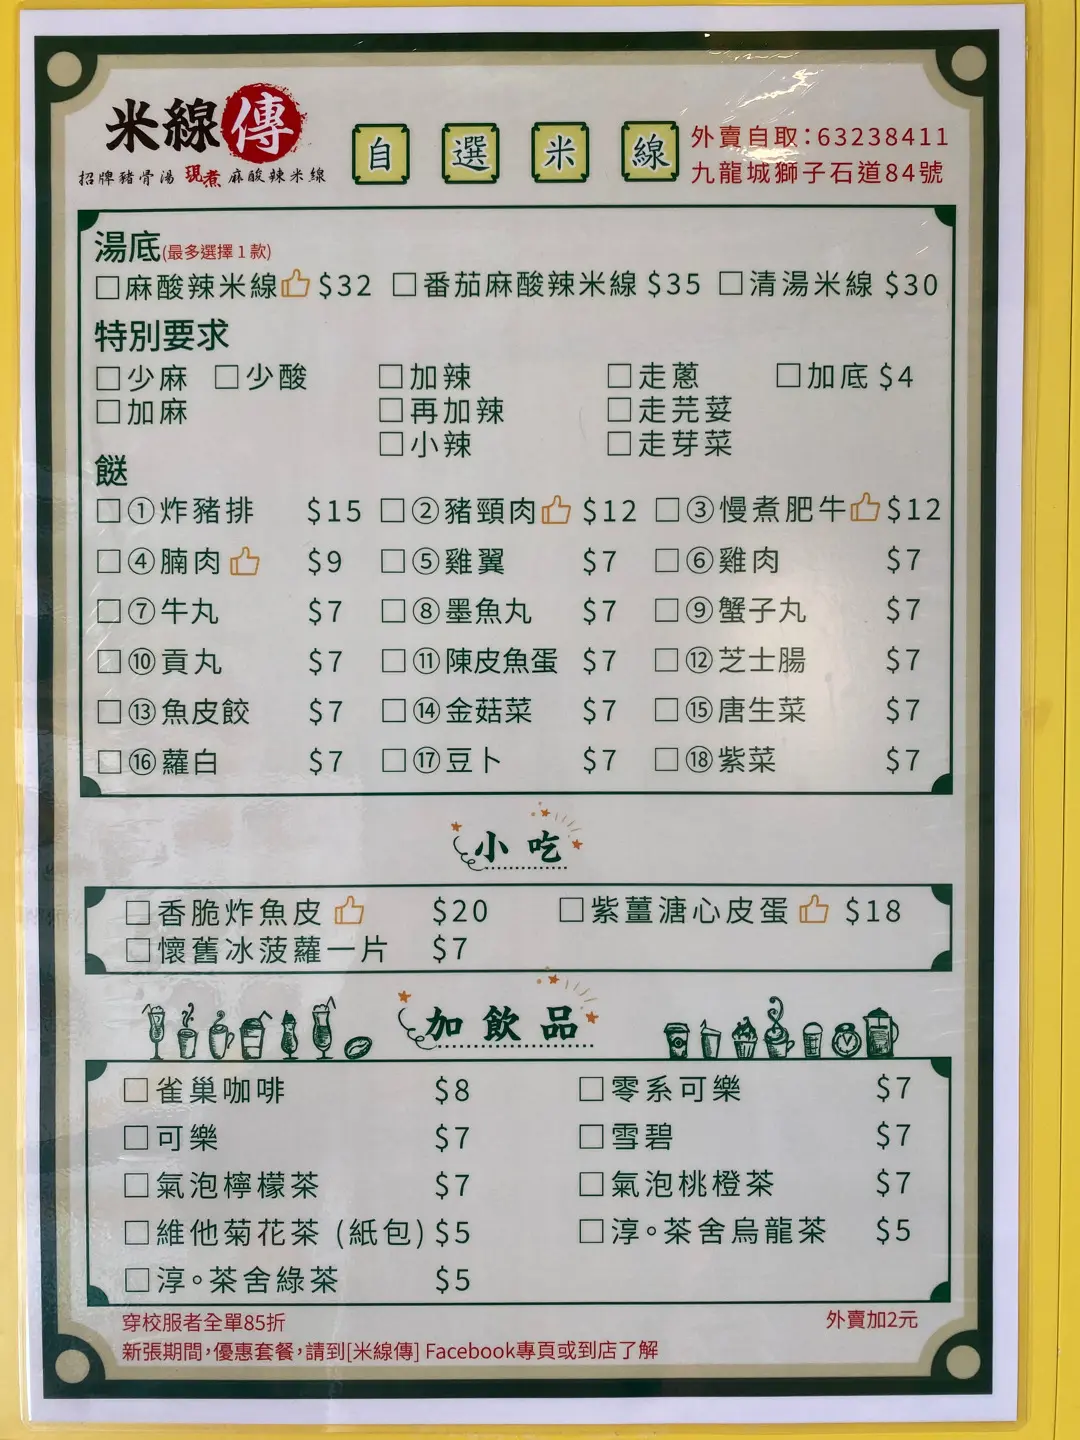 米線傳
招牌豬骨湯 現煮 麻酸辣米線
自選米線
外賣自取：63238411
九龍城獅子石道84號
湯底(最多選擇1款)
□麻酸辣米線 $32 □番茄麻酸辣米線 $35 □清湯米線 $30
特別要求
□少麻 □少酸 □加辣 □走蔥 □加底 $4
□加麻 □再加辣 □走芫荽
□小辣 □走芽菜
餸
□①炸豬排 $15 □②豬頸肉 $12 □③慢煮肥牛 $12
□④腩肉 $9 □⑤雞翼 $7 □⑥雞肉 $7
□⑦牛丸 $7 □⑧墨魚丸 $7 □⑨蟹子丸 $7
□⑩貢丸 $7 □⑪陳皮魚蛋 $7 □⑫芝士腸 $7
□⑬魚皮餃 $7 □⑭金菇菜 $7 □⑮唐生菜 $7
□⑯蘿白 $7 □⑰豆卜 $7 □⑱紫菜 $7
小吃
□香脆炸魚皮 $20 □紫薑溏心皮蛋 $18
□懷舊冰菠蘿一片 $7
加飲品
□雀巢咖啡 $8 □零系可樂 $7
□可樂 $7 □雪碧 $7
□氣泡檸檬茶 $7 □氣泡桃橙茶 $7
□維他菊花茶 (紙包) $5 □淳。茶舍烏龍茶 $5
□淳。茶舍綠茶 $5
穿校服者全單85折 外賣加2元
新張期間，優惠套餐，請到[米線傳] Facebook專頁或到店了解